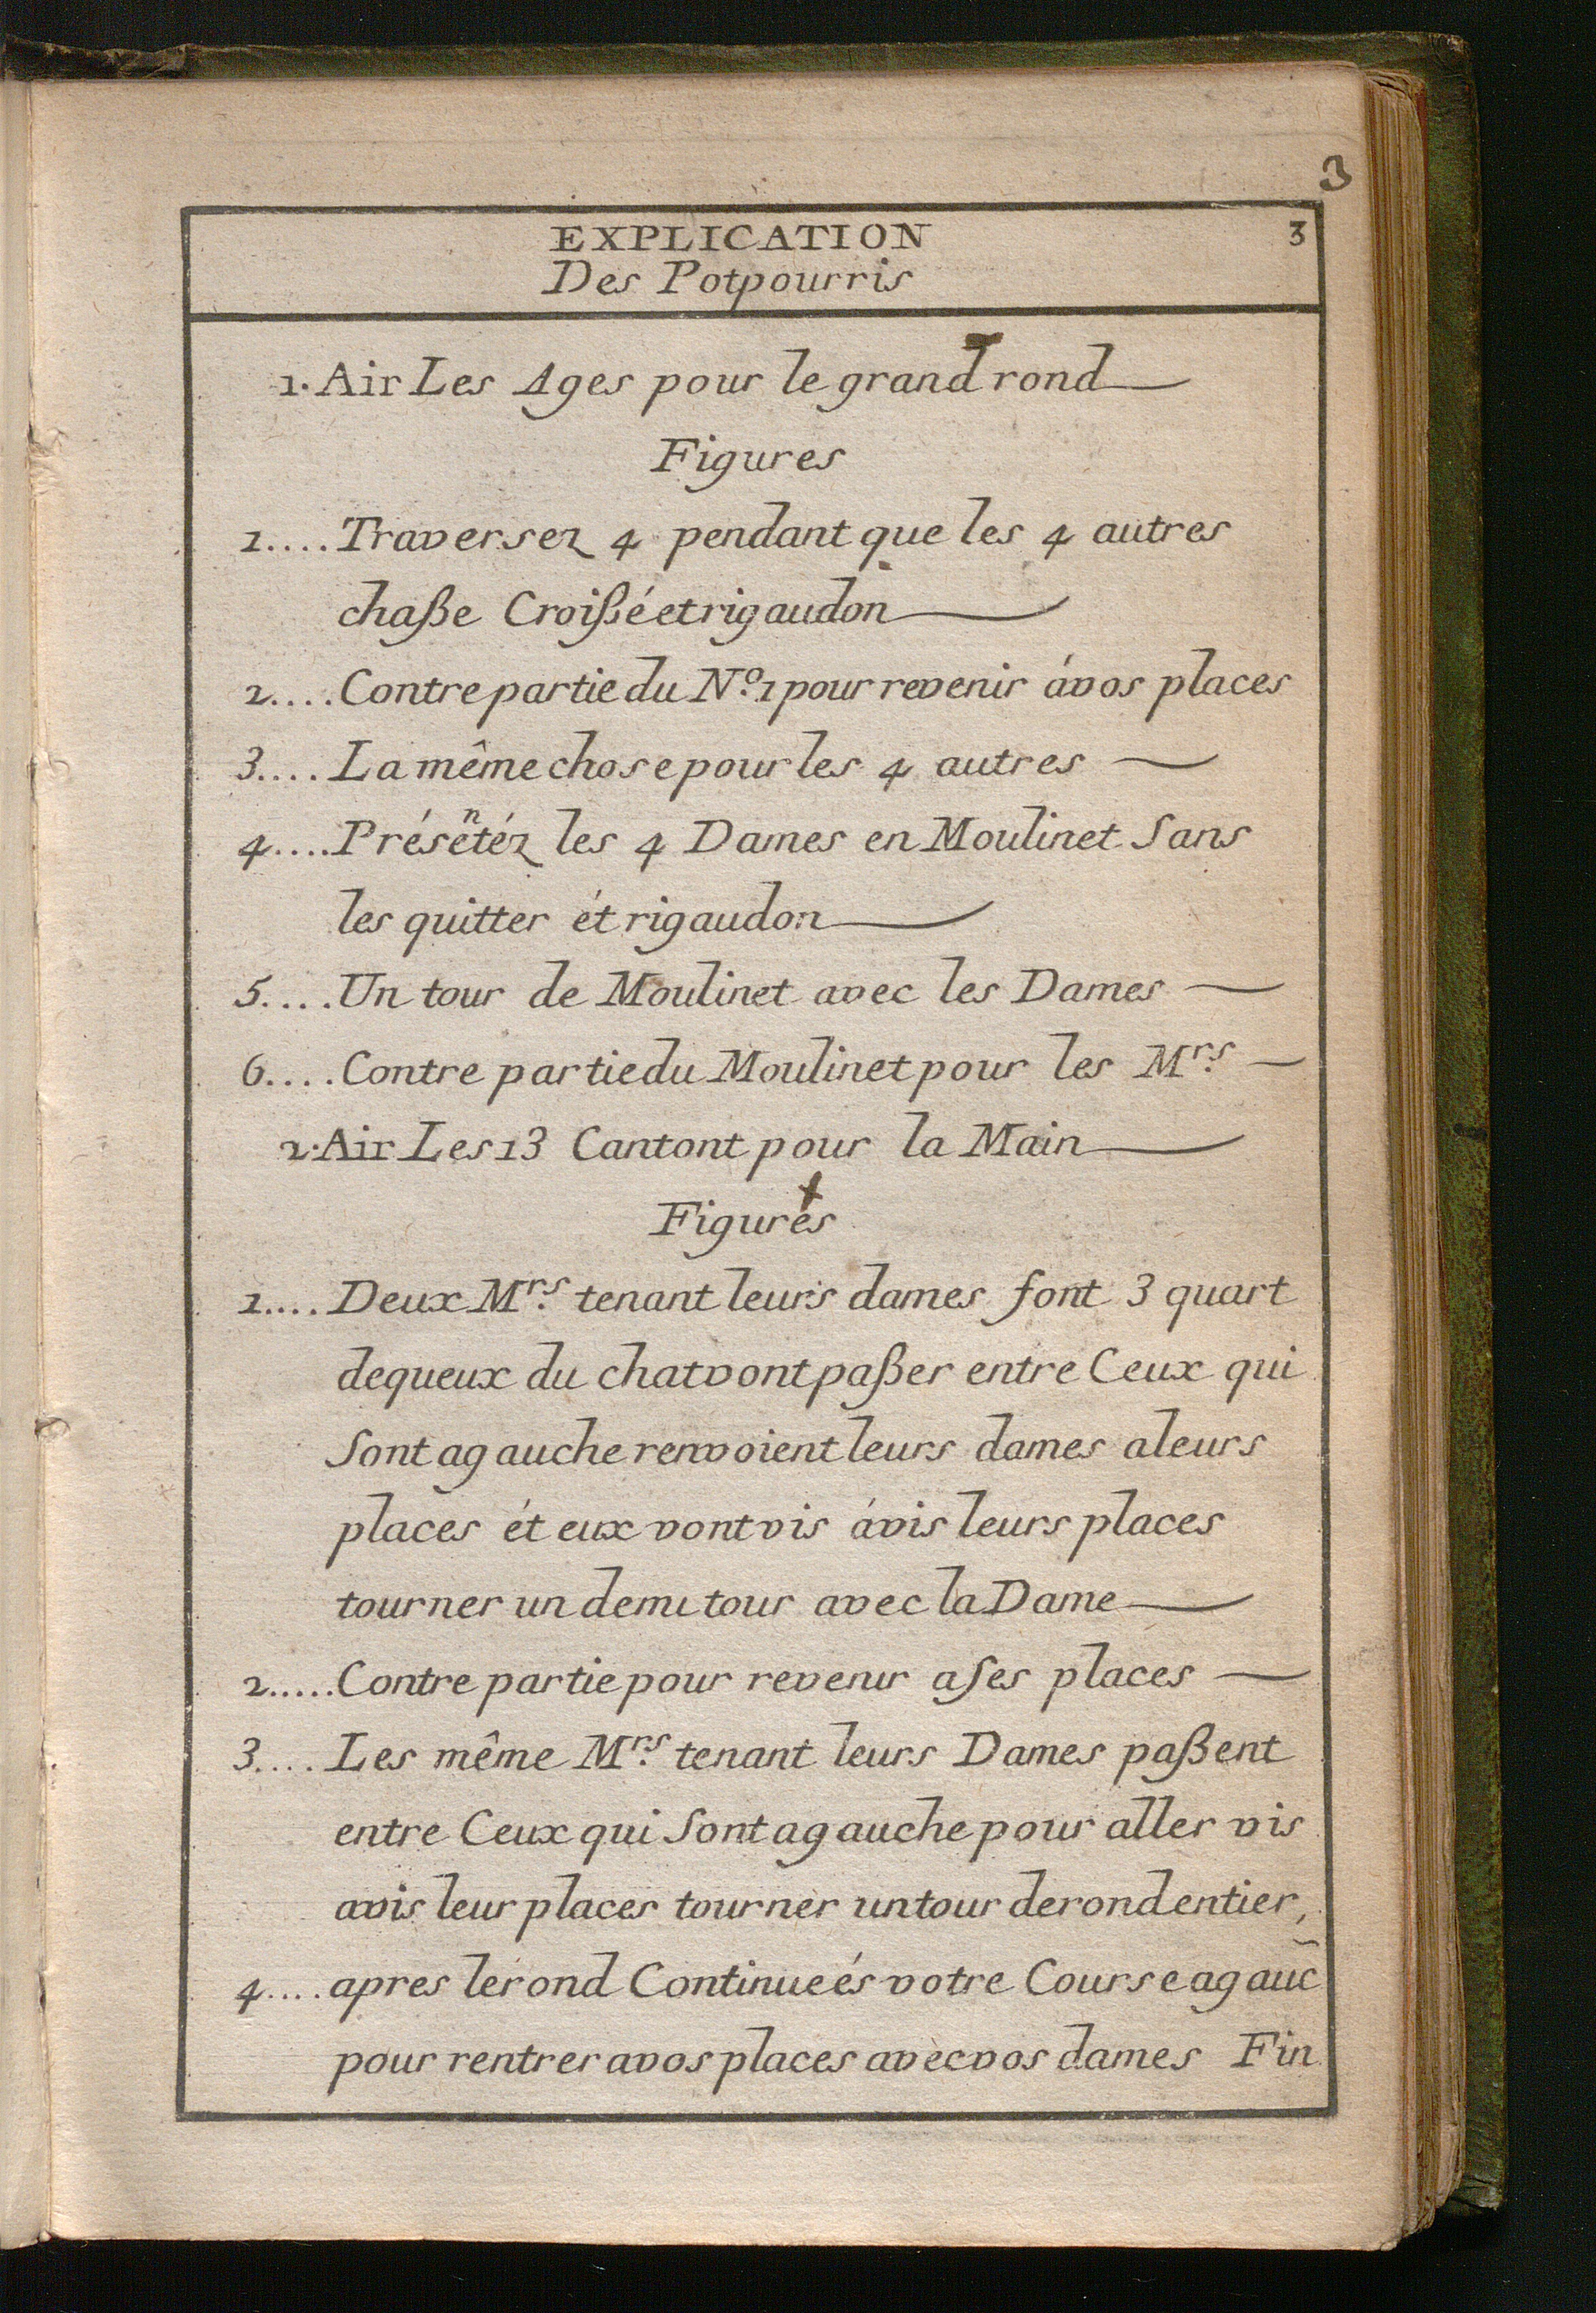 3
EXPLICATION 3
Des Potpourris
1. Air Les Ages pour le grand rond
Figures
1.... Traversez 4 pendant que les 4 autres
chaße Croißé et rigaudon
2.... Contre partie du N.º 1 pour revenir á vos places
3.... La même chose pour les 4 autres
4.... Présẽⁿtéz les 4 Dames en Moulinet Sans
les quitter ét rigaudon
5.... Un tour de Moulinet avec les Dames
6.... Contre partie du Moulinet pour les M.rs
2. Air Les 13 Cantont pour la Main
Figures
1.... Deux M.rs tenant leurs dames font 3 quart
de queux du chat vont paßer entre Ceux qui
Sont a gauche renvoient leurs dames a leurs
places ét eux vont vis á vis leurs places
tourner un demi tour avec la Dame
2..... Contre partie pour revenir a ses places
3.... Les même M.rs tenant leurs Dames paßent
entre Ceux qui Sont a gauche pour aller vis
avis leur places tourner un tour de rond entier,
4.... apres le rond Continueés votre Course a gauc̃
pour rentrer a vos places avec vos dames Fin